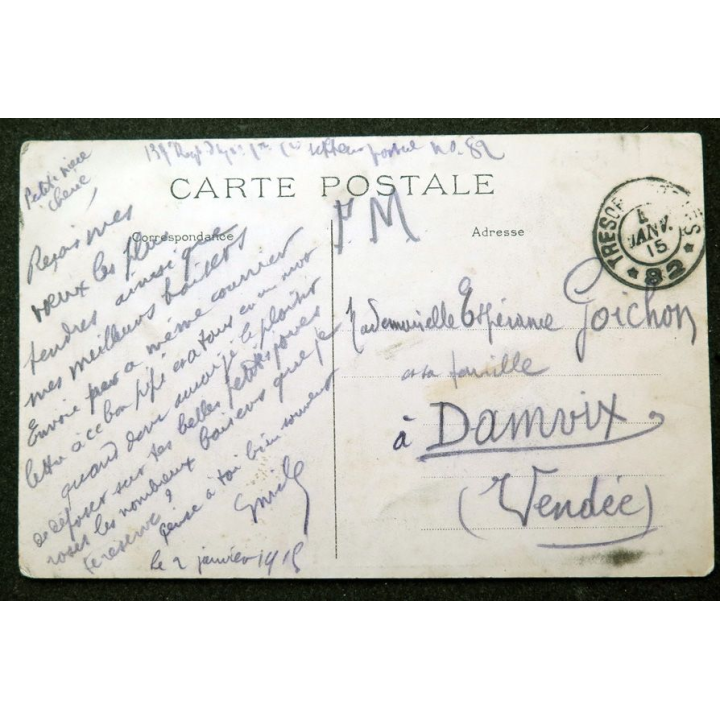 secteur postal no. 82
Petite nièce
chérie,
CARTE POSTALE
F.M
Correspondance
Adresse
TRESOR
JANV.
15
* 82 *
Reçois mes
vœux les plus
tendres ainsi que
mes meilleurs baisers
Envoie par même courrier
lettre à ce bon pépé et à tous en un mot
quand donc aurai-je le plaisir
de déposer sur tes belles petites joues
roses les nombreux baisers que je
te réserve ?
pense à toi bien souvent
Emile
le 2 janvier 1915
Mademoiselle Espérance Goichon
et sa famille
à Damvix
(Vendée)